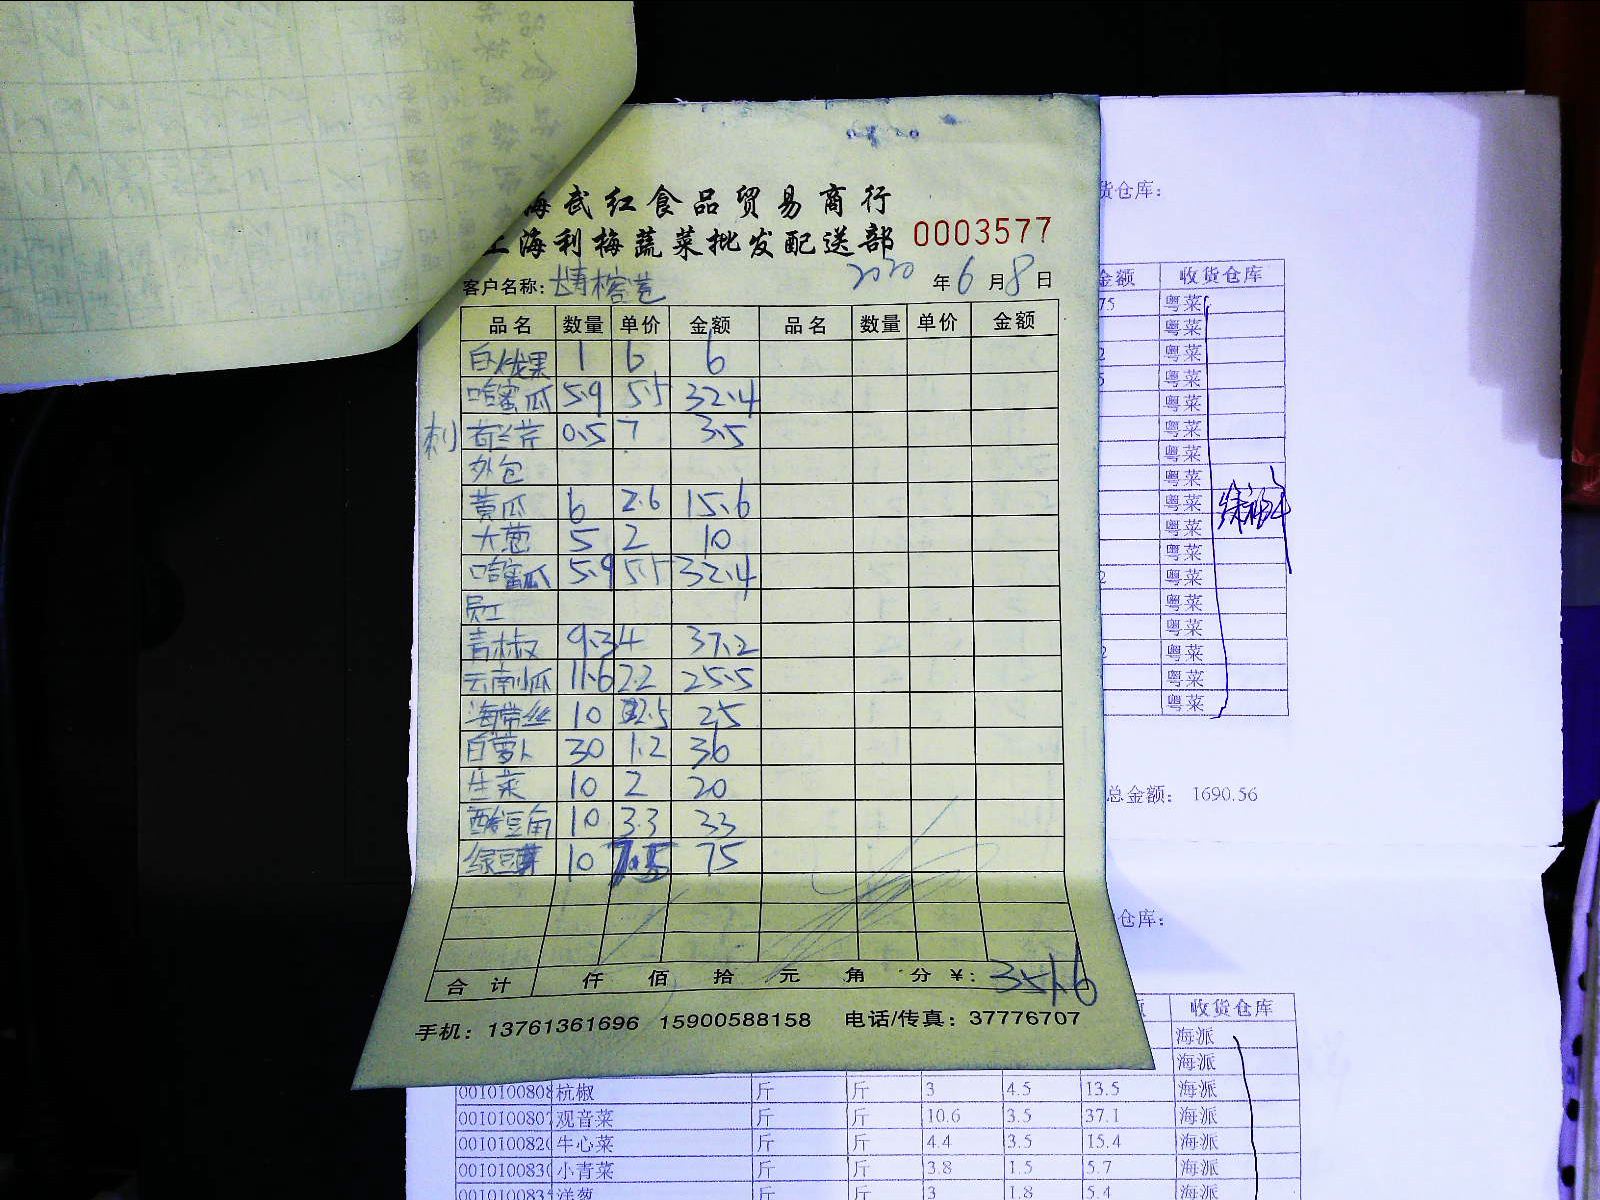 海武红食品贸易商行
上海利梅蔬菜批发配送部 0003577
客户名称: 2020 年 6 月 8 日
品名 数量 单价 金额 品名 数量 单价 金额
白火龙果 1 6 6
哈蜜瓜 5.9 5.5 32.4
刺 荷兰芹 0.5 7 3.5
外包
黄瓜 6 2.6 15.6
大葱 5 2 10
哈蜜瓜 5.9 5.5 32.4
员工
青椒 9.3 4 37.2
云南小瓜 11.6 2.2 25.5
海带丝 10 2.5 25
白萝卜 30 1.2 36
生菜 10 2 20
酸豆角 10 3.3 33
绿豆芽 10 7.5 75
合计 仟 佰 拾 元 角 分 ¥: 351.6
手机: 13761361696 15900588158 电话/传真: 37776707
货仓库:
金额 收货仓库
75 粤菜
粤菜
2 粤菜
5 粤菜
粤菜
粤菜
粤菜
粤菜
粤菜
粤菜
粤菜
2 粤菜
粤菜
粤菜
2 粤菜
粤菜
粤菜
总金额: 1690.56
仓库:
收货仓库
海派
海派
0010100808 杭椒 斤 斤 3 4.5 13.5 海派
001010080 观音菜 斤 斤 10.6 3.5 37.1 海派
001010082 牛心菜 斤 斤 4.4 3.5 15.4 海派
001010083 小青菜 斤 斤 3.8 1.5 5.7 海派
001010083 洋葱 斤 斤 3 1.8 5.4 海派